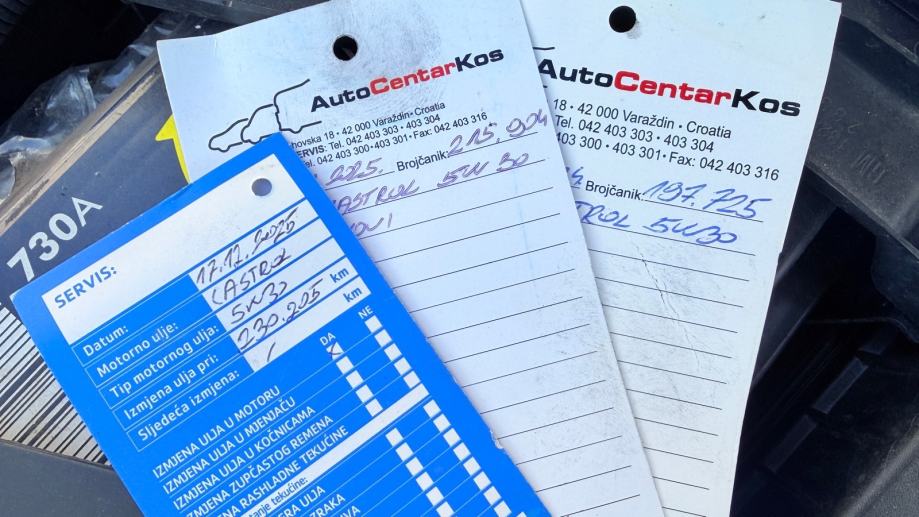 730A
SERVIS:
Datum: 17.12.2025
Motorno ulje: CASTROL
Tip motornog ulja: 5W30
Izmjena ulja pri: 230.225 km
Sljedeća izmjena: / km
DA NE
IZMJENA ULJA U MOTORU
IZMJENA ULJA U MJENJAČU
IZMJENA ULJA U KOČNICAMA
IZMJENA ZUPČASTOG REMENA
IZMJENA RASHLADNE TEKUĆINE
tekućine:
ULJA
ZRAKA
AutoCentarKos
18 • 42 000 Varaždin • Croatia
SERVIS: Tel. 042 403 303 • 403 304
042 403 300 • 403 301 • Fax: 042 403 316
2025. Brojčanik: 215.904
CASTROL 5W30
AutoCentarKos
18 • 42 000 Varaždin • Croatia
Tel. 042 403 303 • 403 304
403 300 • 403 301 • Fax: 042 403 316
Brojčanik: 197.725
5W30